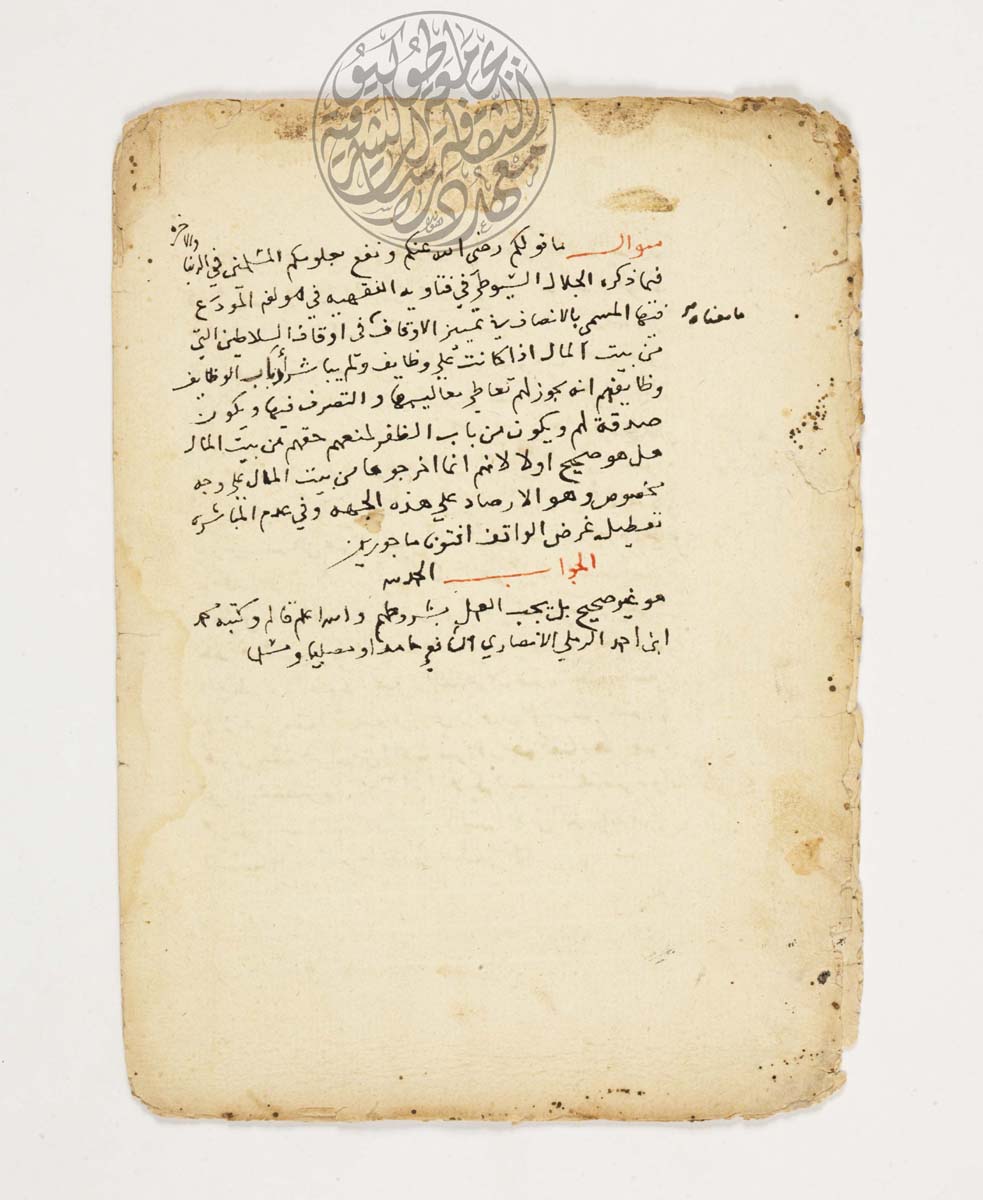 جامعة طوكيو
معهد الثقافة والدراسات الشرقية
سوال ما قولكم رضي الله عنكم ونفع بعلومكم المسلمين في الدنيا والاخرة
فيما ذكره الجلال السيوطي في فتاويه الفقهيه في مولفه المودع
فيها المسمى بالانصاف في تمييز الاوقاف في اوقاف السلاطين التي
ما معناه
من بيت المال اذا كانت علي وظايف ولم يباشر أرباب الوظايف
وظايفهم انه يجوز لهم تعاطي معاليمها والتصرف فيها ويكون
صدقة لهم ويكون من باب الظفر لمنعهم حقهم من بيت المال
هل هو صحيح اولا لانهم انما اخرجوها من بيت المال علي وجه
مخصوص وهو الارصاد علي هذه الجهه وفي عدم المباشره
تعطيل غرض الواقف افتونا ماجورين
الجواب الحمد لله
هو غير صحيح بل يجب العمل بشروطهم والله اعلم قاله وكتبه محمد
ابن احمد الرملي الانصاري الشافعي حامدا ومصليا ومسلما